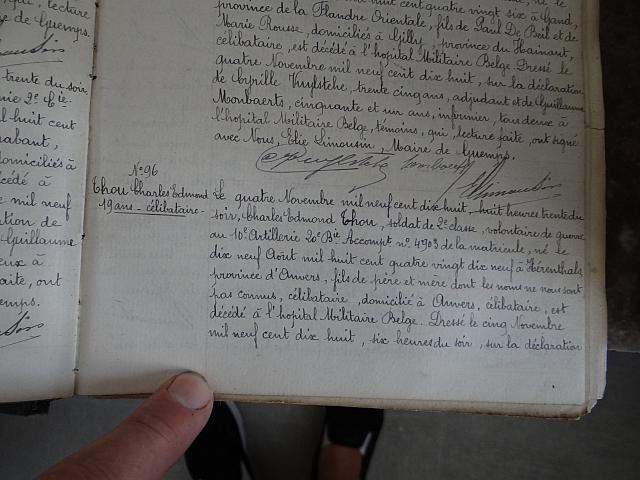 lecture
ze de Guemps.
trente du soir,
huit cent
domiciliés à
cédé à
mil neuf
Guillaume
faite, ont
cent quatre vingt six à Gand,
province de la Flandre Orientale, fils de Paul De Beil et de
Marie Rousse, domicilié à Gilly, province du Hainaut,
célibataire, est décédé à l'hopital Militaire Belge. Dressé le
quatre Novembre mil neuf cent dix huit, sur la déclaration
de Cyrille Vuylsteke, trente cinq ans, adjudant et de Guillaume
Mombaerts, cinquante et un ans, infirmier, tous deux à
l'hopital Militaire Belge, témoins, qui, lecture faite, ont signé
avec Nous, Elie Limousin, Maire de Guemps.
N° 96
Thou Charles Edmond
19 ans - célibataire -
Le quatre Novembre mil neuf cent dix huit, huit heures trente du
soir, Charles Edmond Thou, soldat de 2e classe, volontaire de guerre
au 10e Artillerie 20e Bie Accompt n° 4903 de la matricule, né le
dix neuf Août mil huit cent quatre vingt dix neuf à Hérenthals
province d'Anvers, fils de père et mère dont les noms ne nous sont
pas connus, célibataire, domicilié à Anvers, célibataire, est
décédé à l'hopital Militaire Belge. Dressé le cinq Novembre
mil neuf cent dix huit, six heures du soir, sur la déclaration